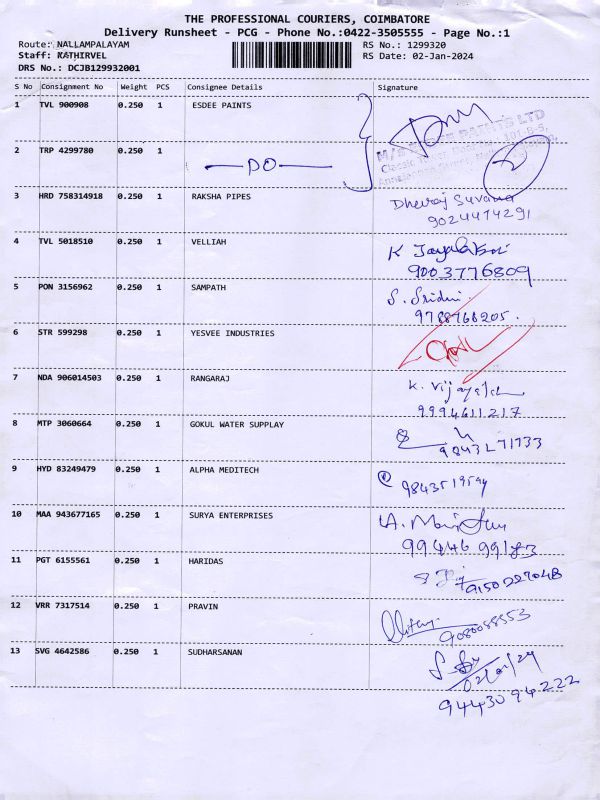 THE PROFESSIONAL COURIERS, COIMBATORE
Delivery Runsheet - PCG - Phone No.:0422-3505555 - Page No.:1
Route: NALLAMPALAYAM RS No.: 1299320
Staff: KATHIRVEL RS Date: 02-Jan-2024
DRS No.: DCJB129932001
S No Consignment No Weight PCS Consignee Details Signature
1 TVL 900908 0.250 1 ESDEE PAINTS
2 TRP 4299780 0.250 1 DO
3 HRD 758314918 0.250 1 RAKSHA PIPES Dheeraj Suvana
9024474291
4 TVL 5018510 0.250 1 VELLIAH K
9003776809
5 PON 3156962 0.250 1 SAMPATH S. Sridhi
9788766205.
6 STR 599298 0.250 1 YESVEE INDUSTRIES
7 NDA 906014503 0.250 1 RANGARAJ K.
9994611217
8 MTP 3060664 0.250 1 GOKUL WATER SUPPLAY
9843271733
9 HYD 83249479 0.250 1 ALPHA MEDITECH
10 MAA 943677165 0.250 1 SURYA ENTERPRISES
99446 99183
11 PGT 6155561 0.250 1 HARIDAS
9150227048
12 VRR 7317514 0.250 1 PRAVIN
9080088553
13 SVG 4642586 0.250 1 SUDHARSANAN
02/01/24
9443094222